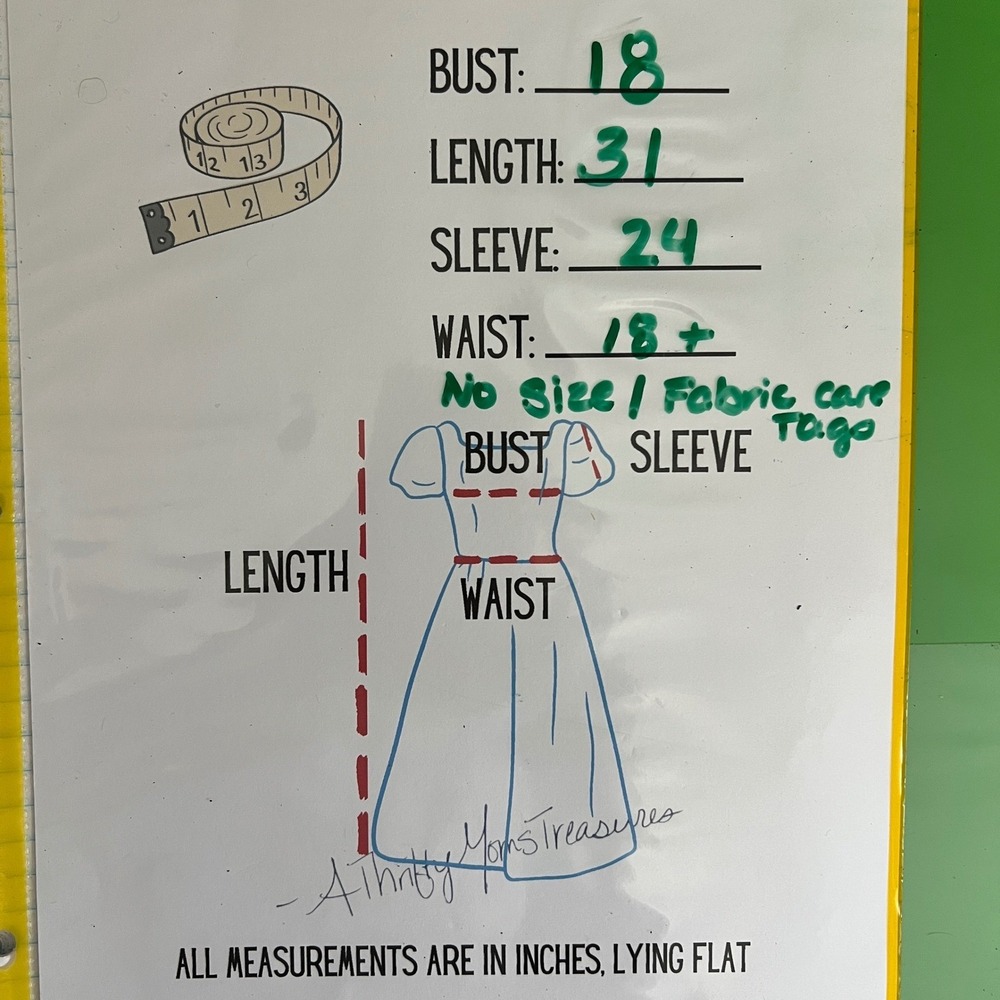 BUST: 18
LENGTH: 31
SLEEVE: 24
WAIST: 18 +
No Size / Fabric care
Tags
12 13
1 2 3
BUST
SLEEVE
LENGTH
WAIST
- AThriftyMomsTreasures
ALL MEASUREMENTS ARE IN INCHES, LYING FLAT